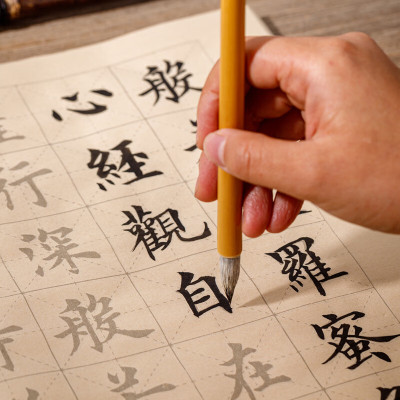 般羅蜜
心經觀自在
行深般